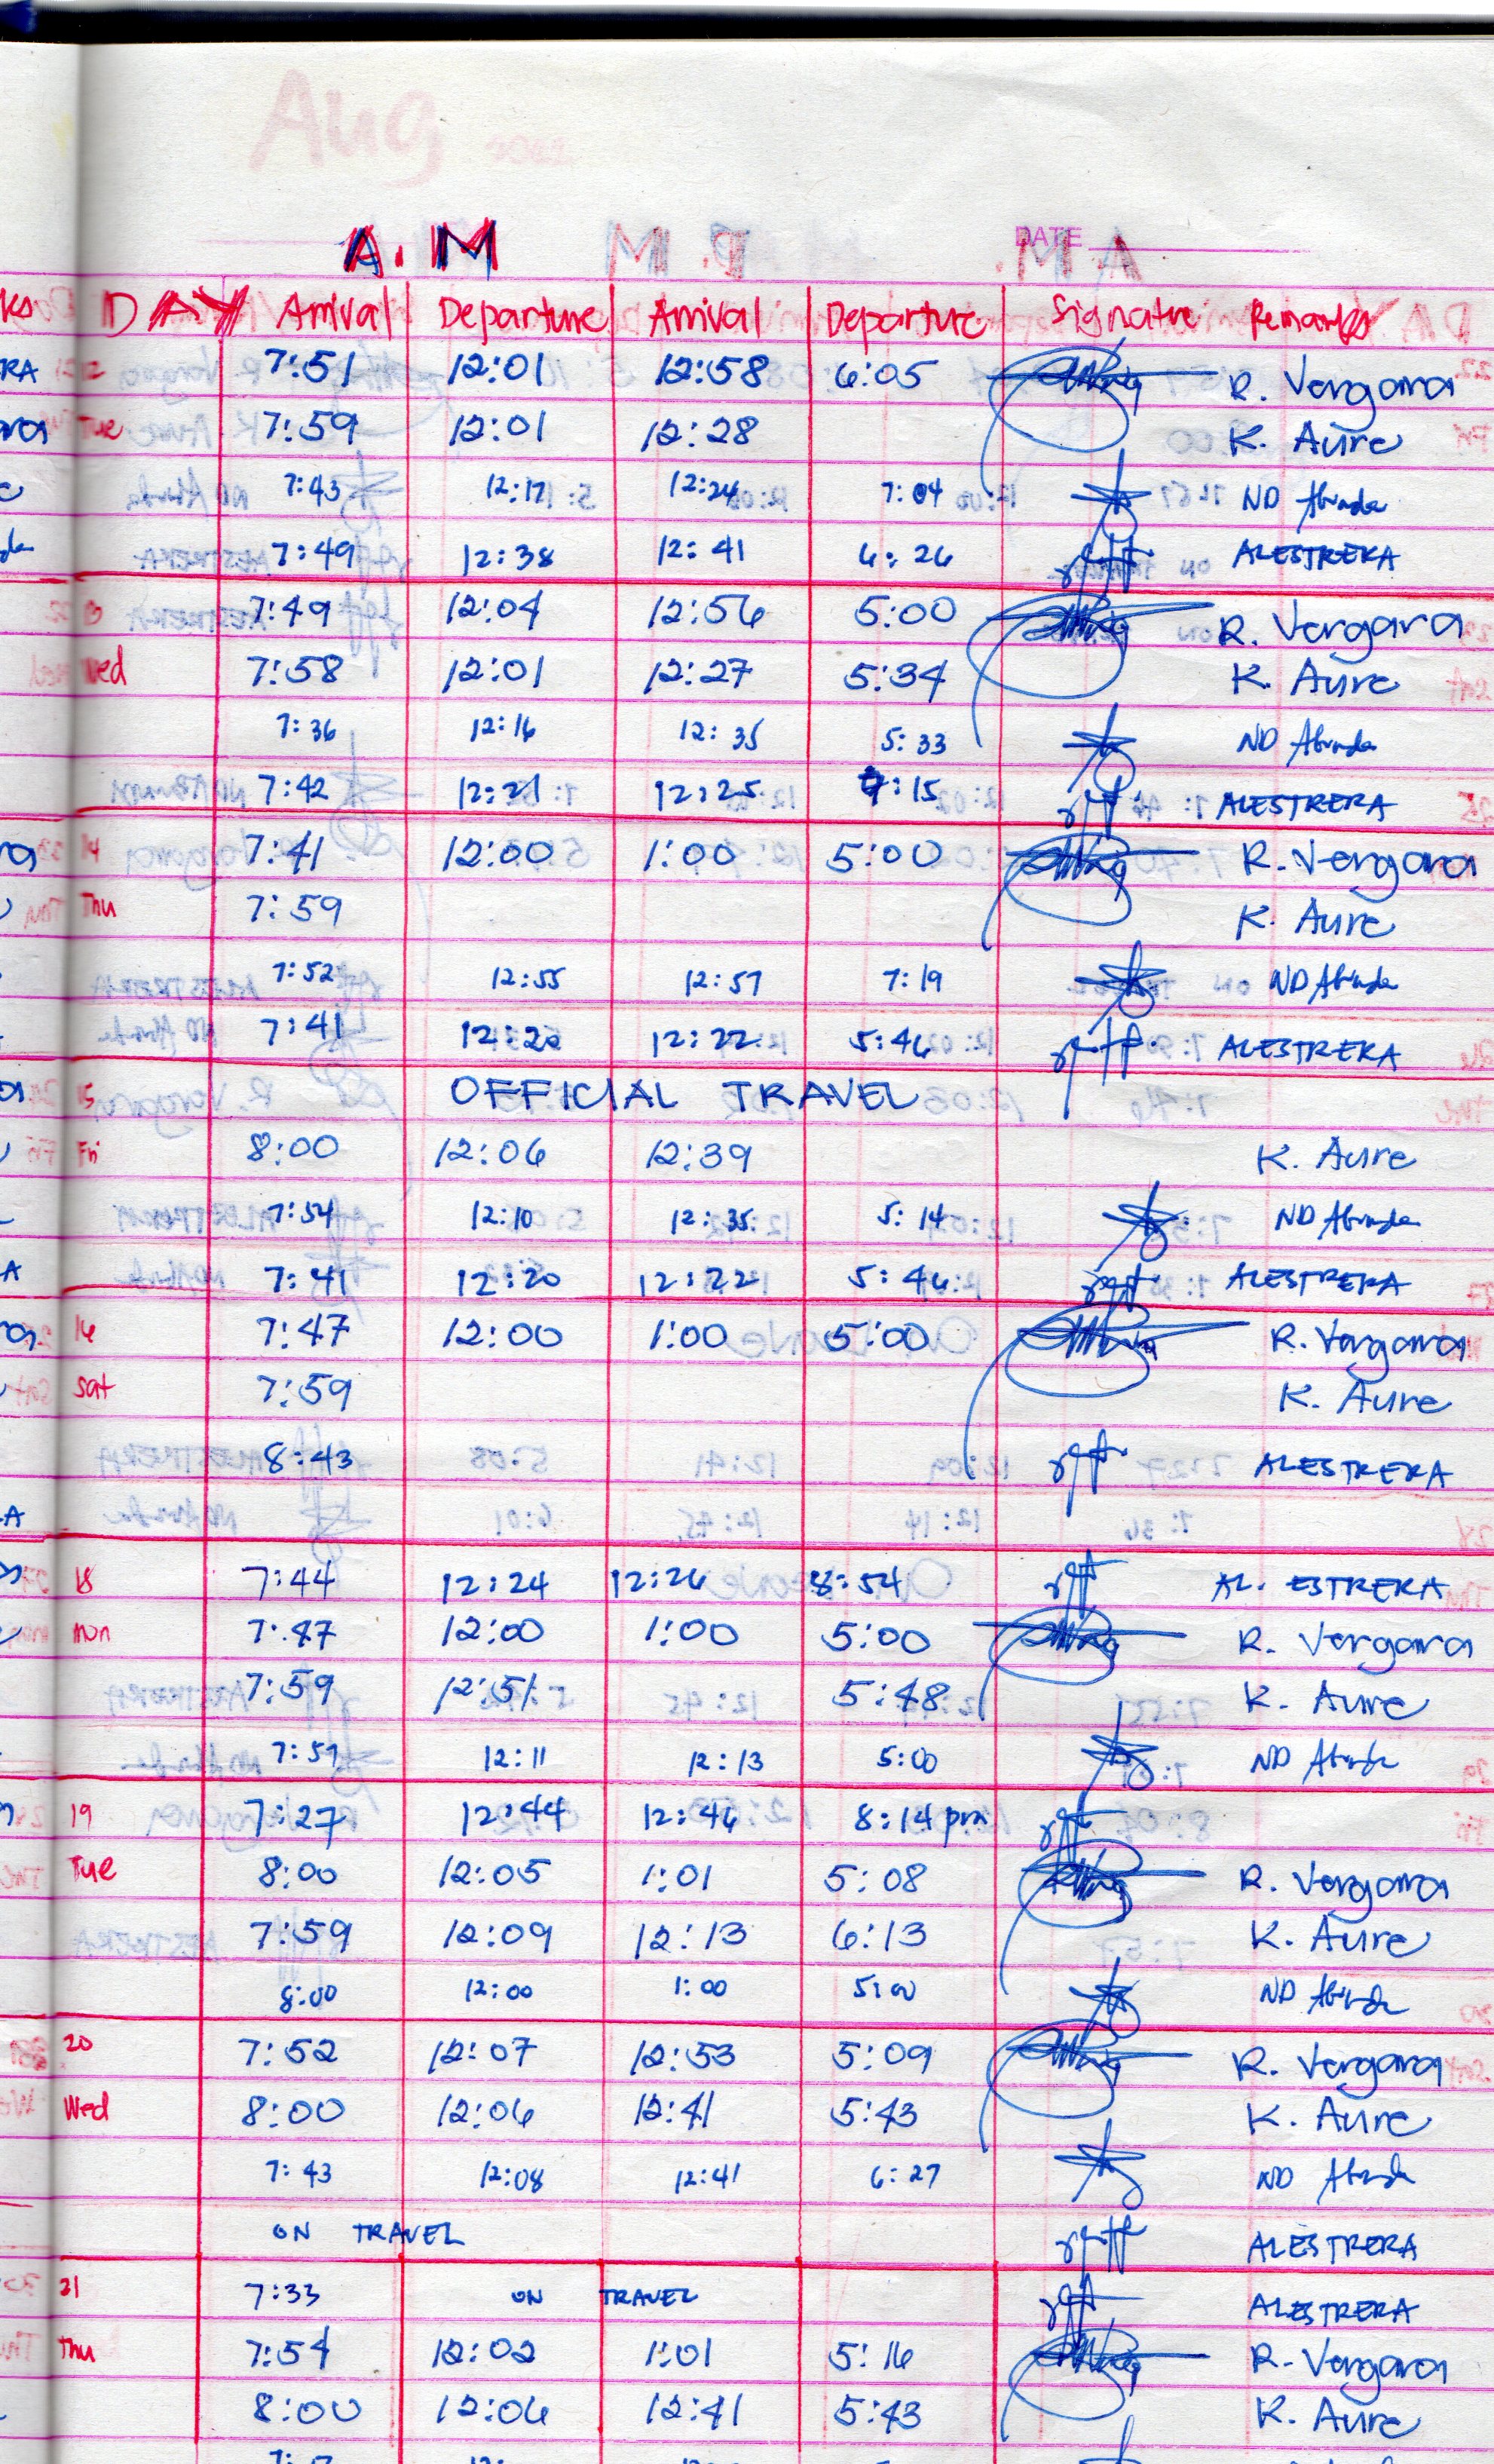 Aug 2022
A.M
DATE
DAY Arrival Departure Arrival Departure Signature Remarks
12 7:51 12:01 12:58 6:05 R. Vergara
Tue 7:59 12:01 12:28 K. Aure
7:43 12:17 12:24 7:04 ND Abrada
7:49 12:38 12:41 6:26 ALESTRERA
13 7:49 12:04 12:56 5:00 R. Vergara
Wed 7:58 12:01 12:27 5:34 K. Aure
7:36 12:16 12:35 5:33 ND Abrada
7:42 12:21 12:25 :15 ALESTRERA
14 7:41 12:00 1:00 5:00 R. Vergara
Thu 7:59 K. Aure
7:52 12:55 12:57 7:19 ND Abrada
7:41 12:20 12:22 5:46 ALESTRERA
15 OFFICIAL TRAVEL
Fri 8:00 12:06 12:39 K. Aure
7:54 12:10 12:35 5:14 ND Abrada
7:41 12:20 12:22 5:46 ALESTRERA
16 7:47 12:00 1:00 5:00 R. Vergara
sat 7:59 K. Aure
8:43 ALESTRERA
18 7:44 12:24 12:26 8:54 AL. ESTRERA
mon 7:47 12:00 1:00 5:00 R. Vergara
7:59 12:51 5:48 K. Aure
7:57 12:11 12:13 5:00 ND Abrada
19 7:27 12:44 12:46 8:14 pm
Tue 8:00 12:05 1:01 5:08 R. Vergara
7:59 12:09 12:13 6:13 K. Aure
8:00 12:00 1:00 5:00 ND Abrada
20 7:52 12:07 12:53 5:09 R. Vergara
Wed 8:00 12:06 12:41 5:43 K. Aure
7:43 12:08 12:41 6:27 ND Abrada
ON TRAVEL ALESTRERA
21 7:33 ON TRAVEL ALESTRERA
Thu 7:54 12:02 1:01 5:16 R. Vergara
8:00 12:06 12:41 5:43 K. Aure